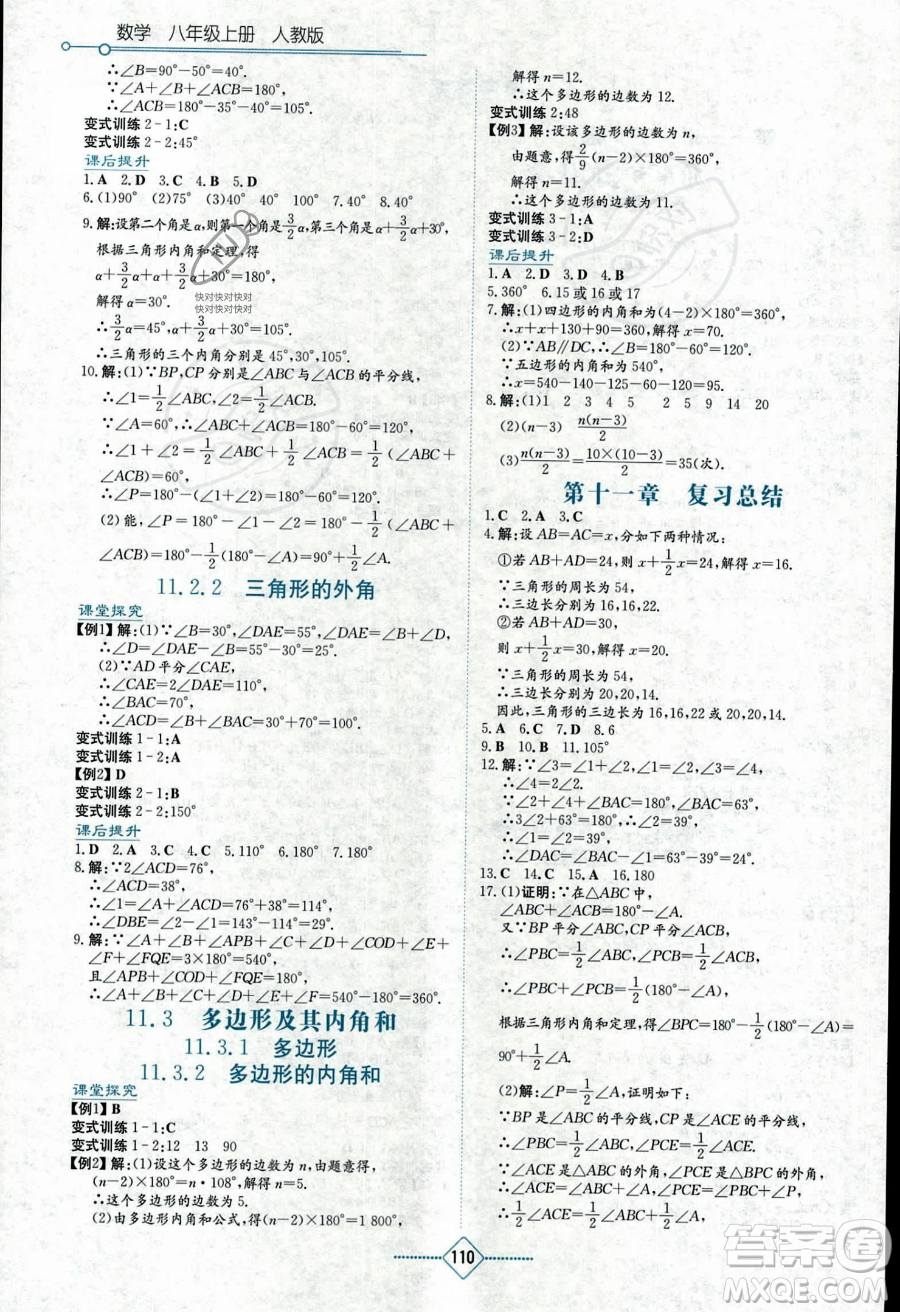 数学 八年级上册 人教版
∴∠B=90°-50°=40°.
∵∠A+∠B+∠ACB=180°,
∴∠ACB=180°-35°-40°=105°.
变式训练2-1:C
变式训练2-2:45°
课后提升
1.A 2.D 3.C 4.B 5.D
6.(1)90° (2)75° (3)40° 40° 100° 7.70° 8.40°
9.解:设第二个角是α,则第一个角是3/2α,第三个角是α+30°.
根据三角形内角和定理,得
α+3/2α+α+30°=180°,
解得α=30°.
∴3/2α=45°,α+30°=60°+45°=105°,
∴三角形的三个内角分别是45°,30°,105°.
10.解:(1)∵BP,CP分别是∠ABC与∠ACB的平分线,
∴∠1=1/2∠ABC,∠2=1/2∠ACB.
∵∠A=60°,∴∠ABC+∠ACB=120°,
∴∠1+∠2=1/2∠ABC+1/2∠ACB=60°,
∴∠P=180°-60°=120°.
(2)能,∠P=180°-(∠1+∠2)=180°-1/2(∠ABC+
∠ACB)=180°-1/2(180°-∠A)=90°+1/2∠A.
11.2.2 三角形的外角
课堂探究
【例1】解:(1)∵∠B=30°,∠DAE=55°,∠DAE=∠B+∠D,
∴∠D=∠DAE-∠B=55°-30°=25°.
(2)∵AD平分∠CAE,
∴∠CAE=2∠DAE=110°,
∴∠BAC=70°,
∴∠ACD=∠B+∠BAC=30°+70°=100°.
变式训练1-1:A
变式训练1-2:A
【例2】D
变式训练2-1:B
变式训练2-2:150°
课后提升
1.D 2.A 3.C 4.C 5.110° 6.180° 7.180°
8.解:∵2∠ACD=76°,
∴∠ACD=38°.
∴∠BDC=∠A+∠ACD=76°+38°=114°,
∴∠DBE=∠BEC-∠BDC=143°-114°=29°.
9.解:∵∠A+∠B+∠APB+∠C+∠D+∠COD+∠E+
∠F+∠FQE=180°×3=540°,
且∠APB+∠COD+∠FQE=180°,
∴∠A+∠B+∠C+∠D+∠E+∠F=360°.
11.3 多边形及其内角和
11.3.1 多边形
11.3.2 多边形的内角和
课堂探究
【例1】B
变式训练1-1:C
变式训练1-2:12 13 90
【例2】解:(1)设这个多边形的边数为n,由题意得,
(n-2)×180°=n·108°,解得n=5.
∴这个多边形的边数为5.
(2)由多边形内角和公式,得(n-2)×180°=1 800°,
解得n=12.
∴这个多边形的边数为12.
变式训练2:48
【例3】解:设该多边形的边数为n,
由题意,得2/9(n-2)×180°=360°,
解得n=11.
∴这个多边形的边数为11.
变式训练3-1:A
变式训练3-2:D
课后提升
1.A 2.D 3.D 4.B
5.360° 6.15或16或17
7.解:(1)四边形的内角和为(4-2)×180°=360°,
∴x+x+130+90=360,解得x=70.
(2)∵AB∥DC,∴∠B=180°-∠C=120°.
∵五边形的内角和为540°,
∴x=540-140-125-60-120=95.
8.解:(1)1 2 3 4 5 2 5 9 14 20
(2)(n-3) n(n-3)/2
(3)n(n-3)/2=10×(10-3)/2=35(次).
第十一章 复习总结
1.C 2.A 3.C
4.解:设AB=AC=x,分如下两种情况:
①若AB+AD=24,则x+1/2x=24,解得x=16.
∵三角形的周长为54,
∴三边长分别为16,16,22.
②若AB+AD=30,
则x+1/2x=30,解得x=20.
∵三角形的周长为54,
∴三边长分别为20,20,14.
因此,三角形的三边长为16,16,22或20,20,14.
5.A 6.C 7.D 8.6
9.B 10.B 11.105°
12.解:∵∠3=∠1+∠2,∠1=∠2,∠3=∠4,
∴∠2=1/2∠3=1/2∠4.
∵∠2+∠4+∠BAC=180°,∠BAC=63°,
∴∠2+∠4=180°-∠BAC=117°,
∴∠2+2∠2=117°,解得∠2=39°,
∴∠DAC=∠BAC-∠1=63°-39°=24°.
13.C 14.C 15.A 16.180
17.(1)证明:∵在△ABC中,
∠ABC+∠ACB=180°-∠A.
又∵BP平分∠ABC,CP平分∠ACB,
∴∠PBC=1/2∠ABC,∠PCB=1/2∠ACB,
∴∠PBC+∠PCB=1/2(180°-∠A),
根据三角形内角和定理,∠BPC=180°-1/2(180°-∠A)=
90°+1/2∠A.
(2)解:∠P=1/2∠A,证明如下:
∵BP是∠ABC的平分线,CP是∠ACE的平分线,
∴∠PBC=1/2∠ABC,∠PCE=1/2∠ACE.
∵∠ACE是△ABC的外角,∠PCE是△BPC的外角,
∴∠ACE=∠ABC+∠A,∠PCE=∠PBC+∠P,
∴1/2∠ACE=1/2∠ABC+1/2∠A,
110
快对快对快对
快对快对快对
答案圈
MXQE.COM